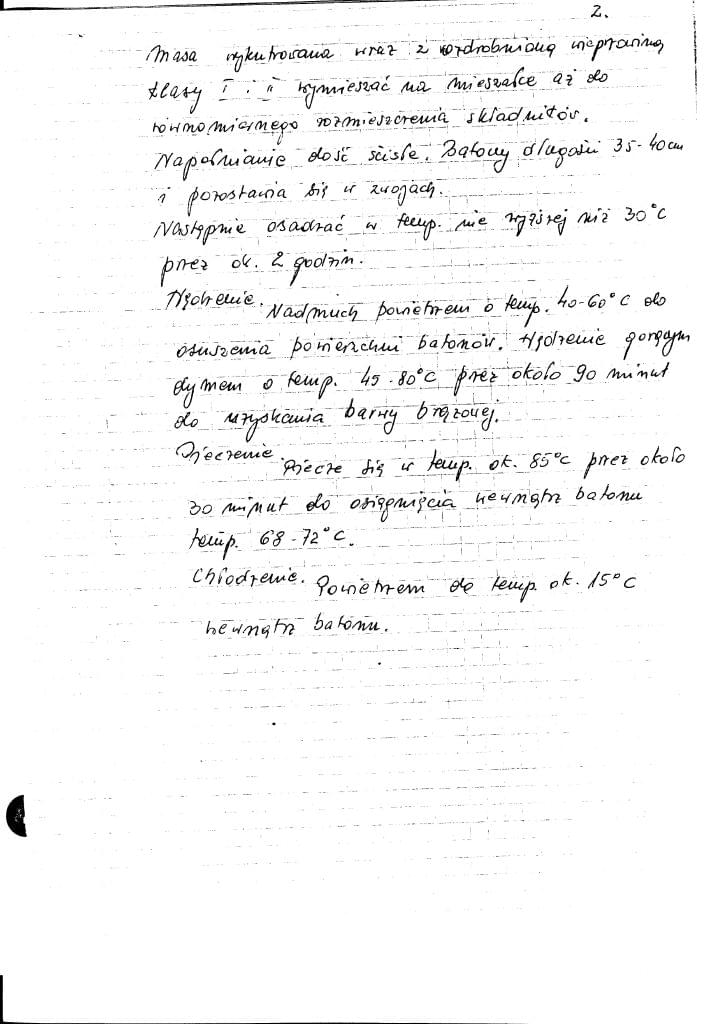 2.
Masa wykutrowana wraz z rozdrobnioną wieprzowiną
klasy I i II wymieszać na mieszałce aż do
równomiernego rozmieszczenia składników.
Napełnianie dość ścisłe. Batony długości 35-40 cm
i pozostawia się w zwojach.
Następnie osadzać w temp. nie wyższej niż 30°C
przez ok. 2 godzin.
Wędzenie. Nadmuch powietrzem o temp. 40-60°C do
osuszenia powierzchni batonów. Wędzenie gorącym
dymem o temp. 45-80°C przez około 90 minut
do uzyskania barwy brązowej.
Pieczenie. Piecze się w temp. ok. 85°C przez około
30 minut do osiągnięcia wewnątrz batonu
temp. 68-72°C.
Chłodzenie. Powietrzem do temp. ok. 15°C
wewnątrz batonu.